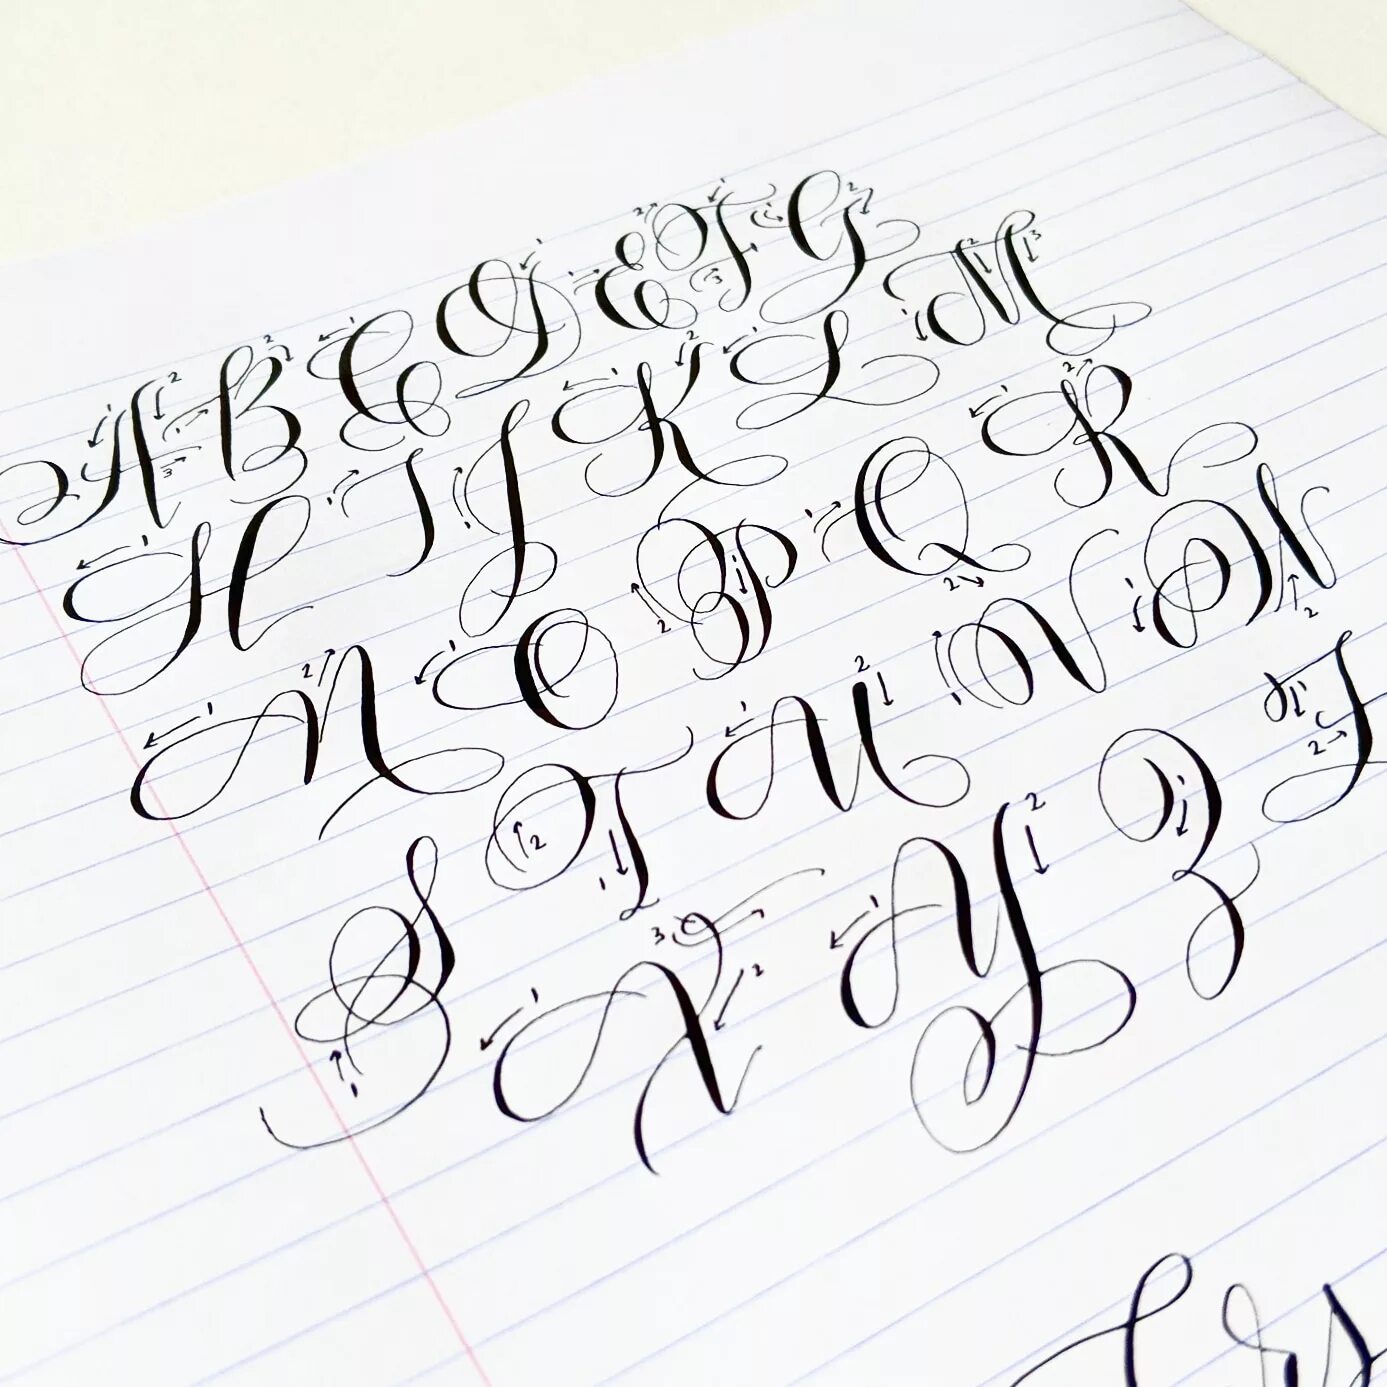 A B C D E F G
H I J K L M
N O P Q R
S T U V W
X Y Z I